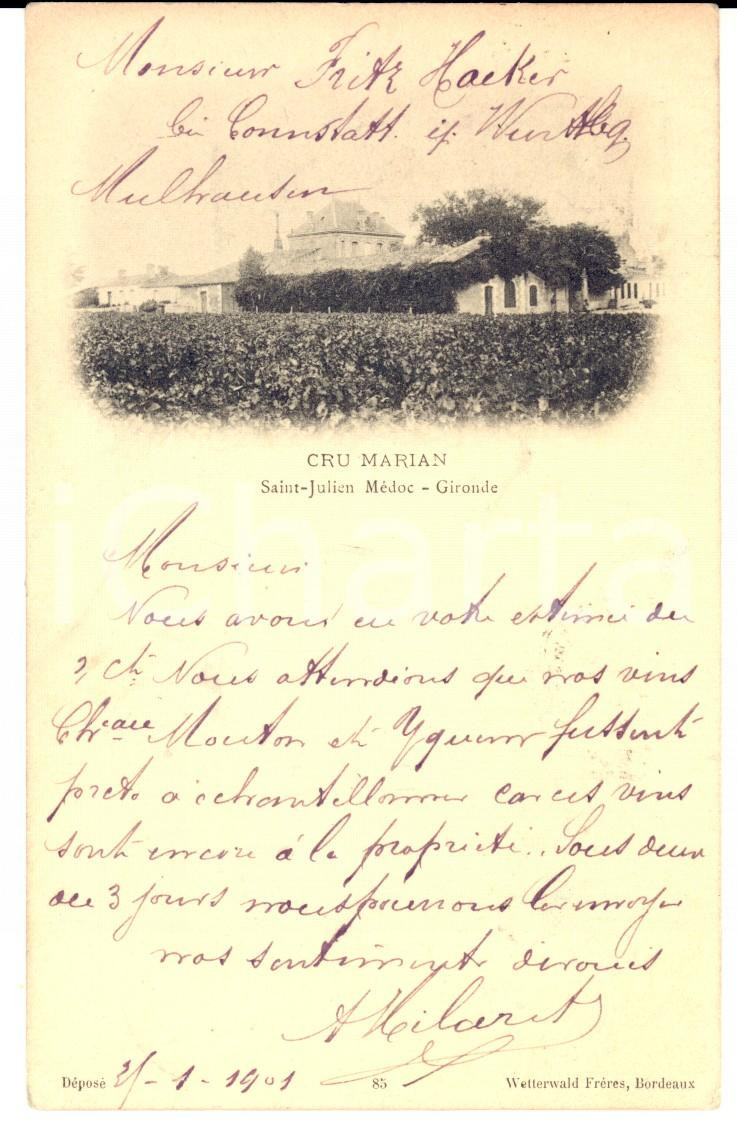 Monsieur Fritz Hacker
bei Connstatt. i/ Wurttbg
Mulhausen
CRU MARIAN
Saint-Julien Médoc - Gironde
Monsieur
Nous avons eu votre estimée du
2, ct Nous attendions que nos vins
Chteau Mouton et Yquem fussent
prets à échantillonner car ces vins
sont encore à la propriété. Sous deux
ou 3 jours nous pourrons les envoyer
nos sentiments dévoués
A Hilaret
Déposé -1-1901 85 Wetterwald Frères, Bordeaux
iCharta